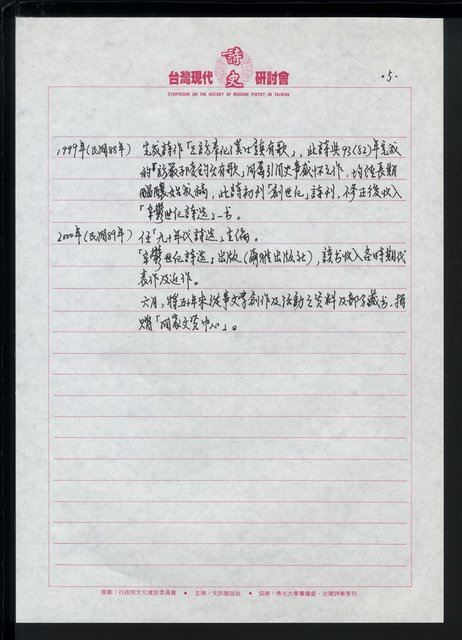 台灣現代詩史研討會
SYMPOSIUM ON THE HISTORY OF MODERN POETRY IN TAIWAN
·5·
1999年(民國88年) 完成詩作「三訪奉化某古頓有歌」,此詩與93(82)年完成
的「訪嚴」同屬引閱史事感懷之作,均經長期
醞釀始成稿,此詩初刊「創世紀」詩刊,修正後收入
「辛鬱世紀詩选」一书。
2000年(民國89年) 任「九十年代詩選」主編。
「辛鬱世紀詩选」出版(爾雅出版社),該书收入各時期代
表作及近作。
六月,將五十年來從事文學創作及活動之资料及部分藏书,捐
贈「国家文资中心」。
策劃：行政院文化建設委員會 ● 主辦：文訊雜誌社 ● 協辦：佛光大學籌備處、台灣詩學季刊